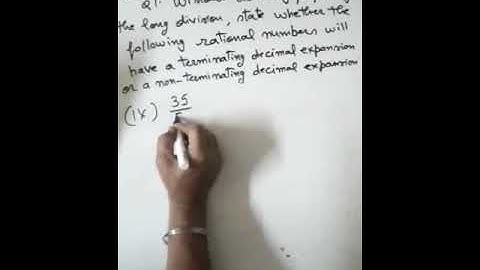 Q1. Without
the long division, state whether the
following rational numbers will
have a terminating decimal expansion
or a non-terminating decimal expansion
(ix) 35